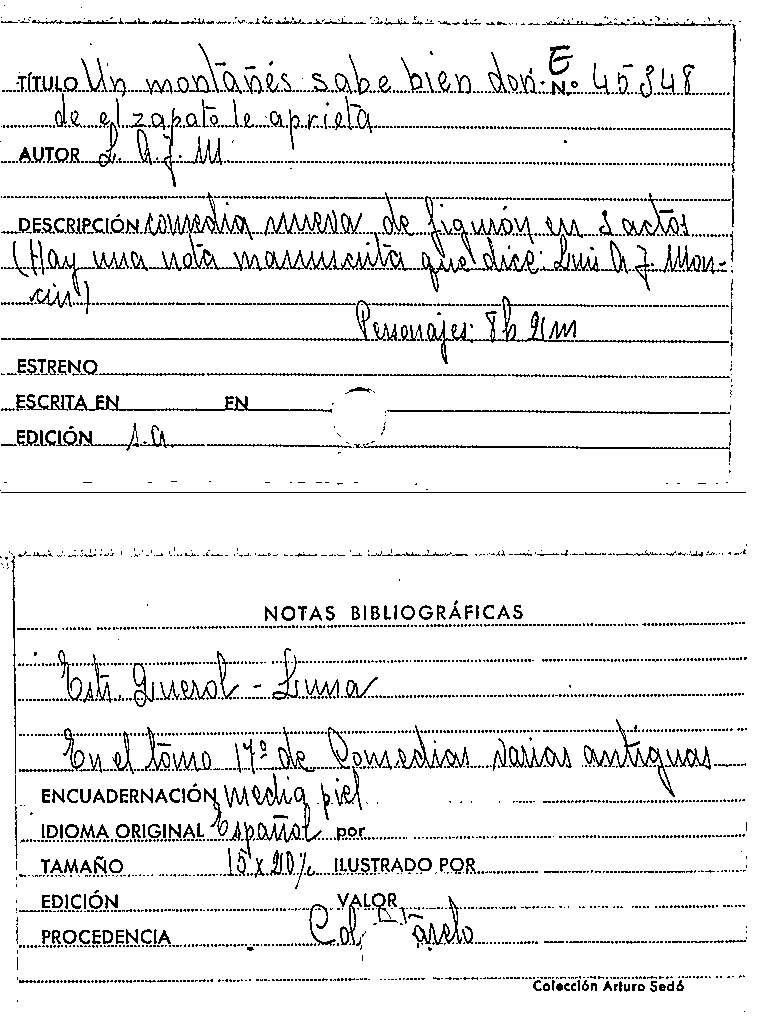 TÍTULO Un montañés sabe bien don- E N.º 45348
de el zapato le aprieta
AUTOR L. A. J. M.
DESCRIPCIÓN comedia nueva de figurón en 3 actos
(Hay una nota manuscrita que dice: Luis A. J. Mon-
cin)
Personajes: 8h 4m
ESTRENO
ESCRITA EN EN
EDICIÓN s.a.
NOTAS BIBLIOGRÁFICAS
Estr. Querol - Luna
En el tomo 17º de Comedias varias antiguas
ENCUADERNACIÓN media piel
IDIOMA ORIGINAL Español por
TAMAÑO 15 x 20 % ILUSTRADO POR
EDICIÓN VALOR
PROCEDENCIA Col.
Colección Arturo Sedó